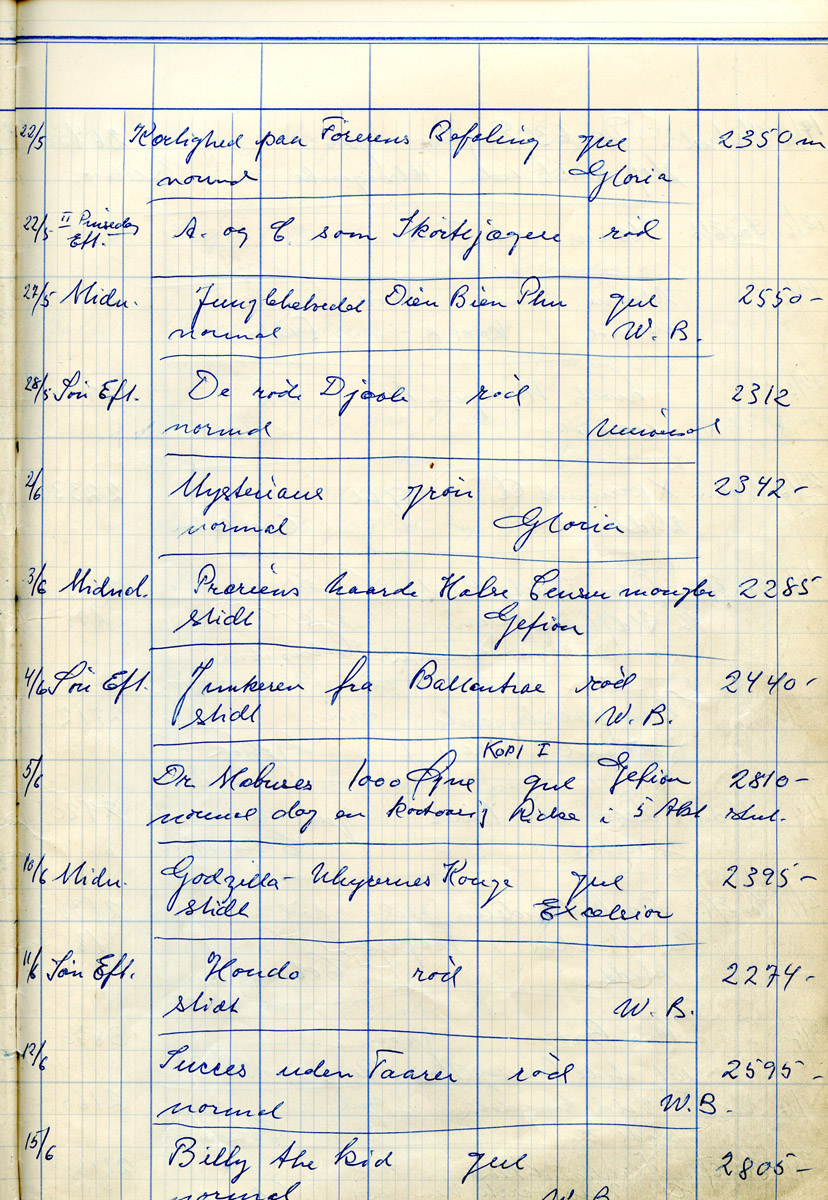 22/5 Kærlighed paa Förerens Befaling gul 2350 m
normal Gloria
22/5 II Pinsedag Eft. A. og C. som Skörtejægere röd
27/5 Midn. Junglehelvedet Dien Bien Phu gul 2550 -
normal W. B.
28/5 Sön Eft. De röde Djævle röd 2312
normal Universal
2/6 Mysteriane grön 2342 -
normal Gloria
3/6 Midnat. Præriens haarde Halse Censur mangler 2285
slidt Gefion
4/6 Sön Eft. Junkeren fra Ballantrae röd 2440 -
slidt W. B.
KOPI I
5/6 Dr. Mabuses 1000 Öjne gul Gefion 2810 -
normal dog en i 5 Akt
10/6 Midn. Godzilla - Uhyrernes Konge gul 2395 -
slidt Excelsior
11/6 Sön Eft. Hondo röd 2274 -
slidt W. B.
12/6 Succes uden Taarer röd 2595 -
normal W. B.
15/6 Billy the Kid gul 2805 -
normal W B